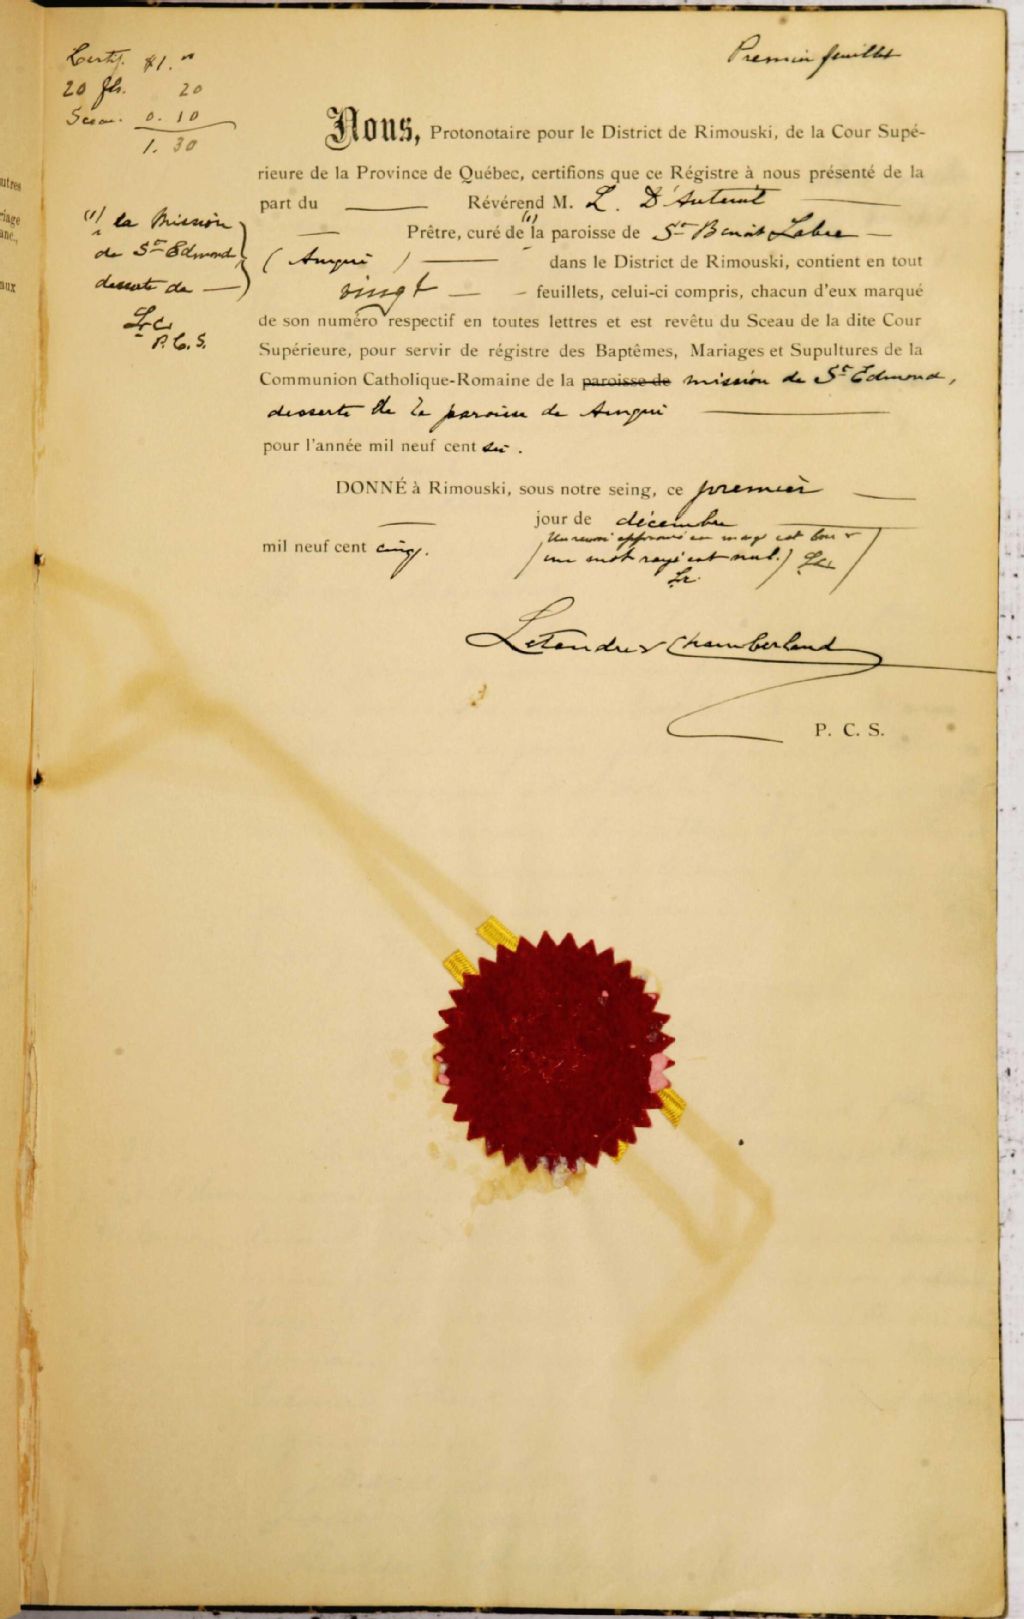 Premier feuillet
Certif. $1.00
20 fls. 20
Sceau. 0.10
1.30
Nous, Protonotaire pour le District de Rimouski, de la Cour Supé-
rieure de la Province de Québec, certifions que ce Régistre à nous présenté de la
part du Révérend M. L. D'Auteuil
Prêtre, curé de (1) la paroisse de St Benoit Labre
(Amqui) dans le District de Rimouski, contient en tout
vingt feuillets, celui-ci compris, chacun d'eux marqué
de son numéro respectif en toutes lettres et est revêtu du Sceau de la dite Cour
Supérieure, pour servir de régistre des Baptêmes, Mariages et Supultures de la
Communion Catholique-Romaine de la paroisse de mission de St Edmond,
desserte de la paroisse de Amqui
pour l'année mil neuf cent six.
(1) la Mission
de St Edmond,
desserte de
L&C
P.C.S.
DONNÉ à Rimouski, sous notre seing, ce premier
jour de décembre
mil neuf cent cinq.
(Un renvoi approuvé en marge est bon &
un mot rayé est nul.) L&C
L&C
Letendre & Chamberland
P. C. S.
utres
riage
anc.,
aux